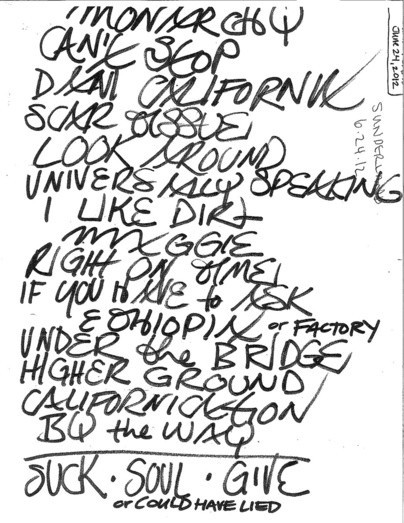 MONARCHY
CAN'T STOP
DANI CALIFORNIA
SCAR TISSUE
LOOK AROUND
UNIVERSALLY SPEAKING
I LIKE DIRT
MAGGIE
RIGHT ON TIME
IF YOU HAVE to ASK
ETHIOPIA or FACTORY
UNDER the BRIDGE
HIGHER GROUND
CALIFORNICATION
BY the WAY
SUCK · SOUL · GIVE
or COULD HAVE LIED
JUNE 24, 2012
SUNDERLAND
6.24.12